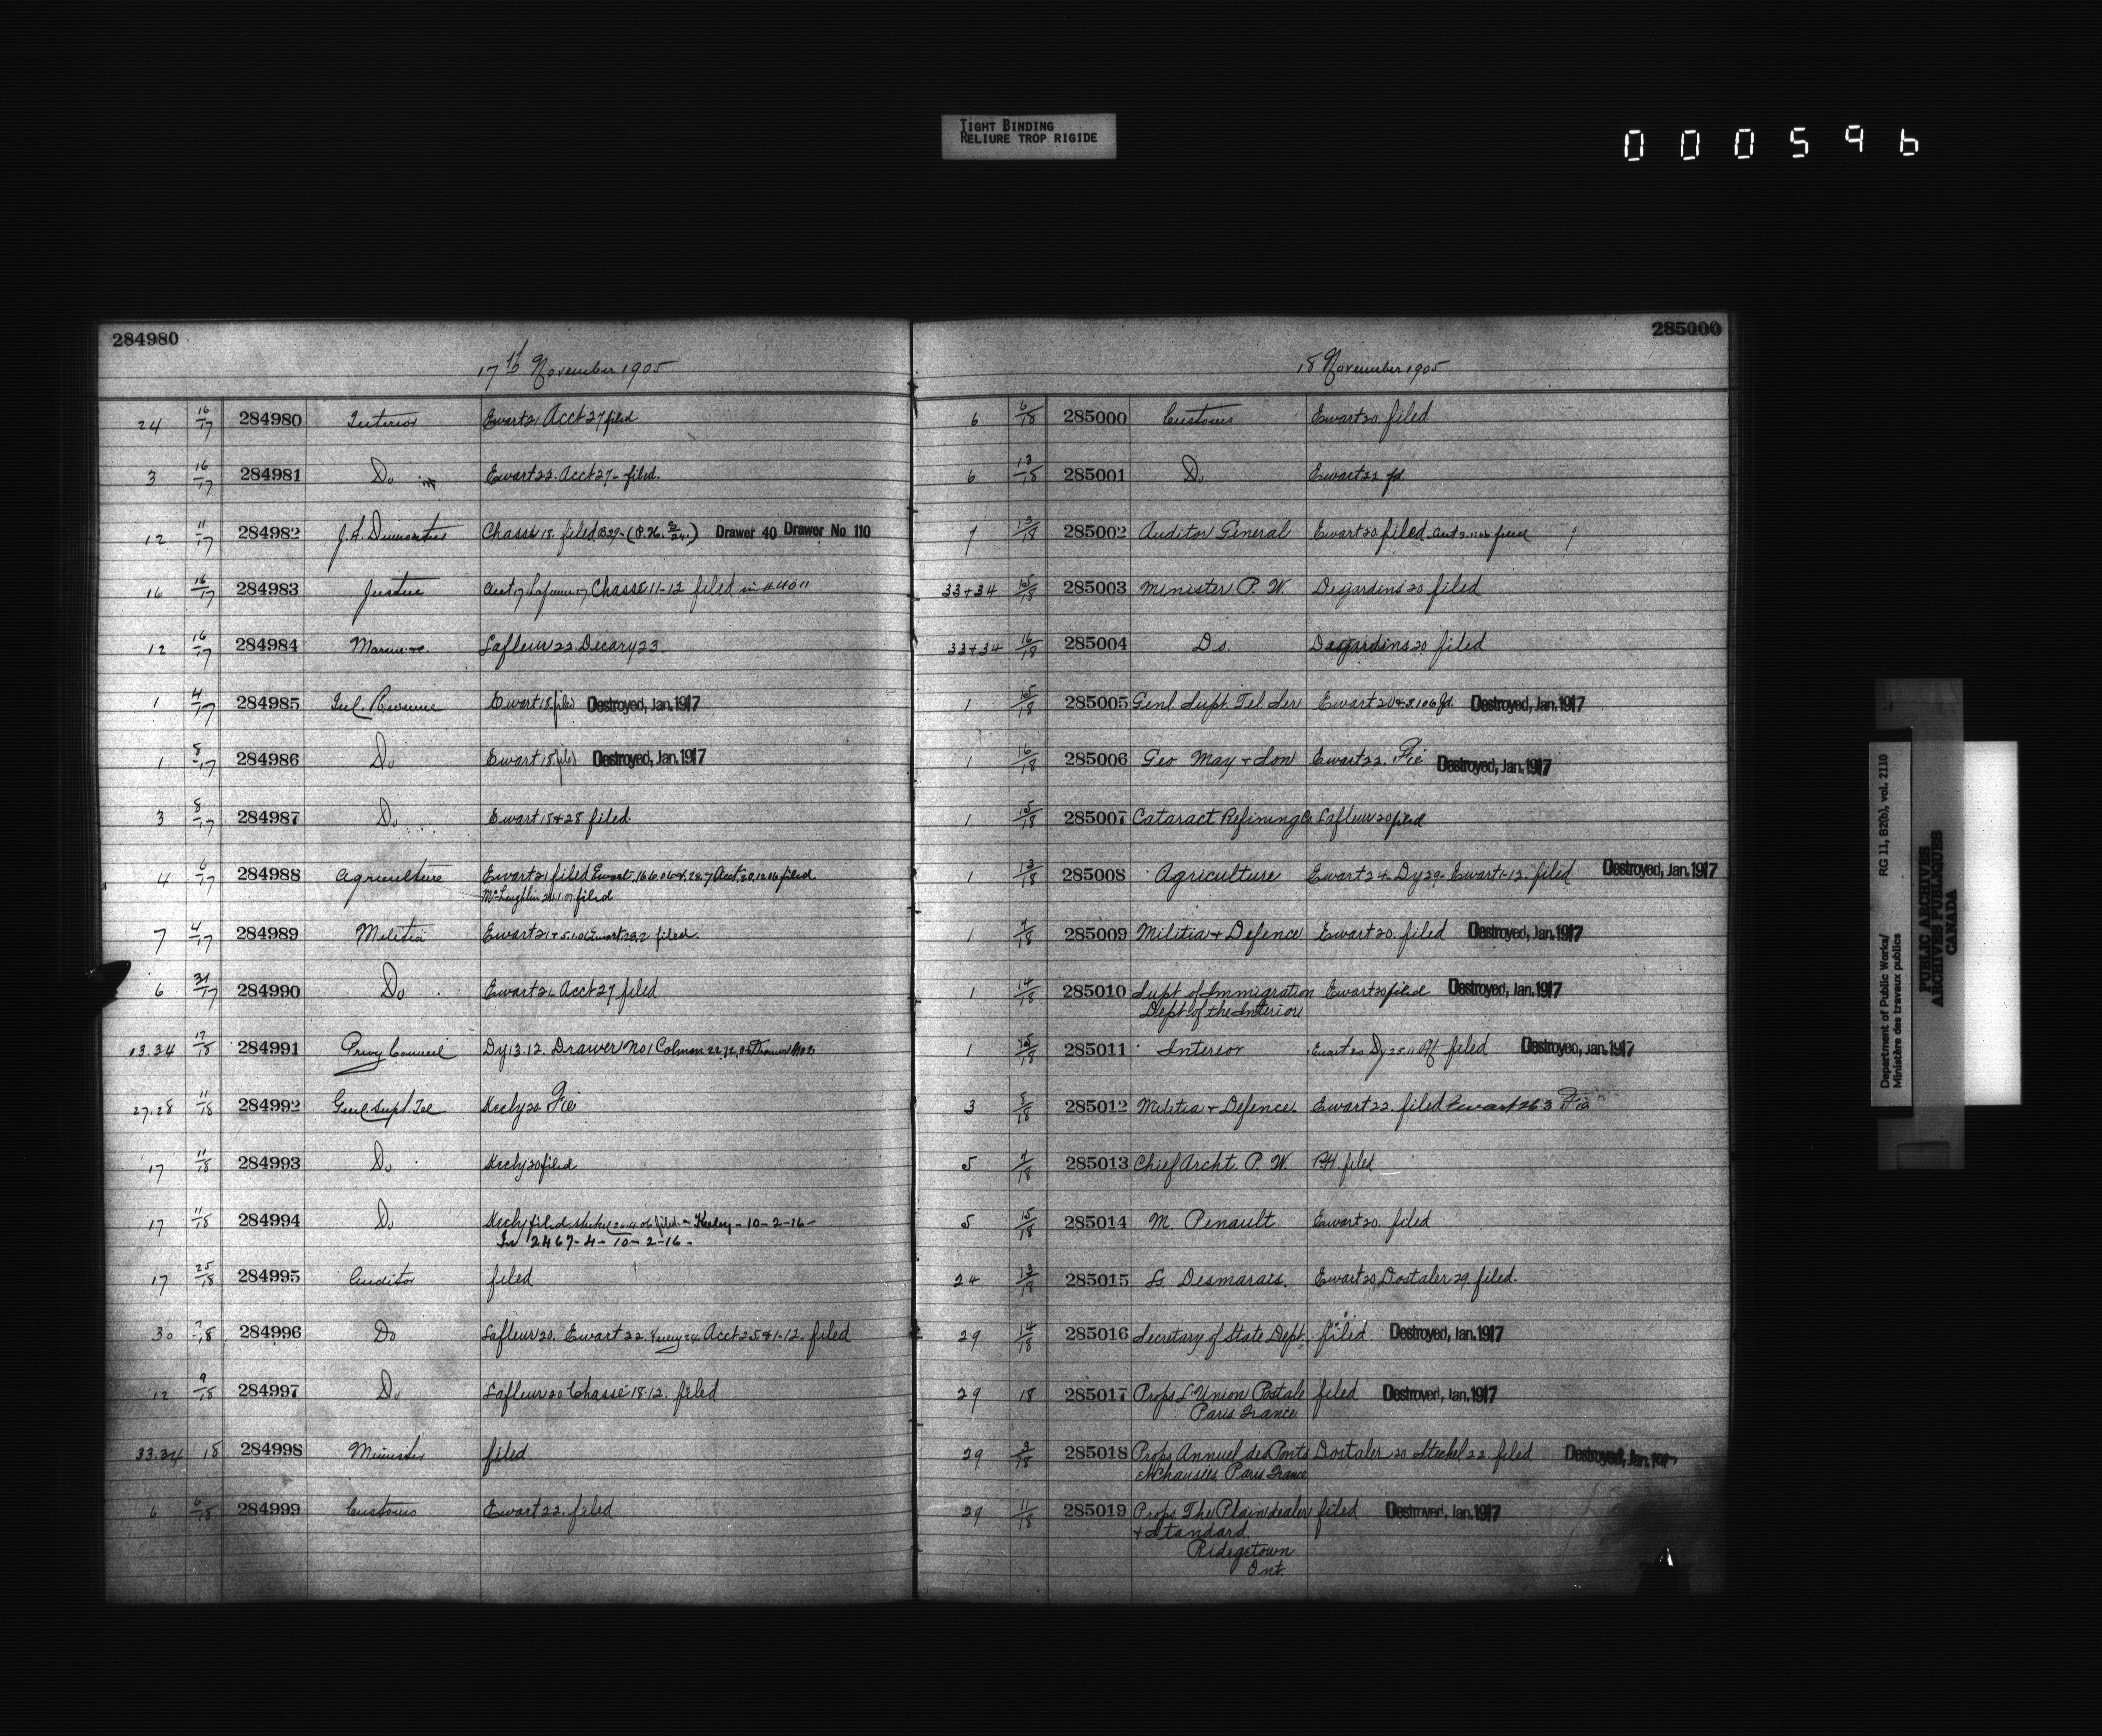 TIGHT BINDING
RELIURE TROP RIGIDE
000596
284980
17th November 1905
24 16/17 284980 Interior Ewart 21 Acct 27 filed
3 16/17 284981 Do Ewart 22. Acct 27 - filed.
12 11/17 284982 J.A. Chassé 18. filed Drawer 40 Drawer No 110
16 16/17 284983 Justice Chassé 11-12 filed in
12 16/17 284984 Marine Lafleur 22. Decary 23.
1 4/17 284985 Inl. Revenue Ewart 18 filed Destroyed, Jan. 1917
1 8/17 284986 Do Ewart 18 filed Destroyed, Jan. 1917
3 8/17 284987 Do Ewart 18 & 28 filed.
4 6/17 284988 Agriculture Ewart 21 filed Ewart filed
McLaughlin filed
7 4/17 284989 Militia Ewart 21 + filed.
6 31/17 284990 Do Ewart 21 Acct 27 filed
13.34 17/18 284991 Privy Council Dy 13.12. Drawer No 1
27.28 11/18 284992 Genl Supt. Tel Keely 20 File
17 11/18 284993 Do Keely 20 filed
17 11/18 284994 Do Keely filed - Keeley - 10-2-16 -
2467-4-10-2-16-
17 25/18 284995 Auditor filed
30 7/18 284996 Do Lafleur 20. Ewart 22. Acct 25 & 1-12- filed
12 9/18 284997 Do Lafleur 20 Chassé 18.12. filed
33.34 18 284998 Minister filed
6 6/18 284999 Customs Ewart 22. filed
285000
18 November 1905
6 6/18 285000 Customs Ewart 20. filed
6 13/18 285001 Do Ewart 22 fd.
7 13/18 285002 Auditor General Ewart 20 filed filed
33+34 15/18 285003 Minister P. W. Desjardins 20 filed
33+34 16/18 285004 Do. Desjardins 20 filed
1 15/18 285005 Genl. Supt. Tel. Ser Ewart 20 & fd. Destroyed, Jan. 1917
1 16/18 285006 Geo May + Son Ewart 22. File Destroyed, Jan. 1917
1 15/18 285007 Cataract Refining Co Lafleur 20 filed
1 13/18 285008 Agriculture Ewart 24 - Dy 29 - Ewart 1-12. filed Destroyed, Jan. 1917
1 7/18 285009 Militia + Defence Ewart 20. filed Destroyed, Jan. 1917
1 14/18 285010 Supt of Immigration Ewart 20 filed Destroyed, Jan. 1917
Dept of the Interior
1 285011 Interior Ewart 20 filed Destroyed, Jan. 1917
3 8/18 285012 Militia + Defence. Ewart 22. filed Ewart 26.3 File
5 285013 Chief Archt. P. W. P.H. filed
5 15/18 285014 M. Penault Ewart 20. filed
24 13/18 285015 Desmarais. Ewart 20, Dostaler 29, filed.
29 14/18 285016 Secretary of State Dept. filed Destroyed, Jan. 1917
29 18 285017 Props L'Union Postale filed Destroyed, Jan. 1917
Paris France
29 2/18 285018 Props Annuel des Ponts Dostaler 20 Steckel 22. filed Destroyed, Jan. 1917
et Chausees, Paris France
29 11/18 285019 Props The Plaindealer filed Destroyed, Jan. 1917
+ Standard
Ridgetown
Ont.
Department of Public Works/
Ministère des travaux publics
RG 11, B2(b), vol. 2110
PUBLIC ARCHIVES
ARCHIVES PUBLIQUES
CANADA